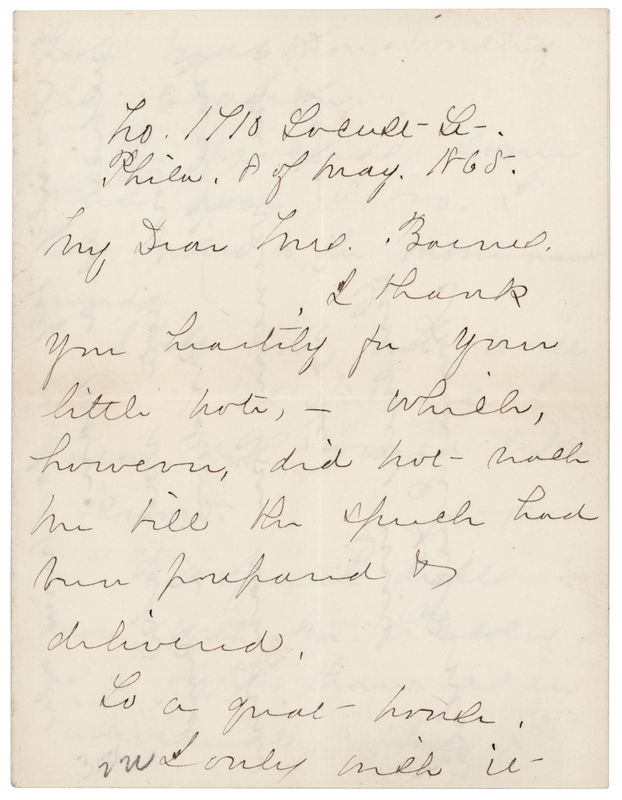 No. 1710 Locust St.
Phila. 8 of May. 1865.
My Dear Mrs. Barnes.
I thank
you heartily for your
little note, – which,
however, did not reach
me till the speech had
been prepared &
delivered.
To a great house.
I only wish it